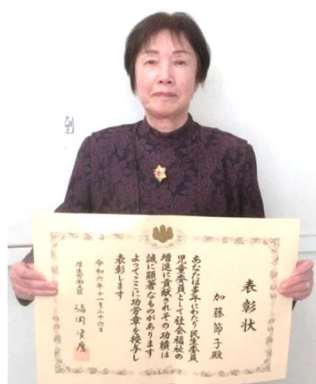 表彰状
加藤節子殿
あなたは多年にわたり民生委員
児童委員として社会福祉の
増進に貢献されその功績は
誠に顕著なものがあります
よってここに功労章を授与し
表彰します
令和六年十一月二十六日
厚生労働大臣
福岡資麿